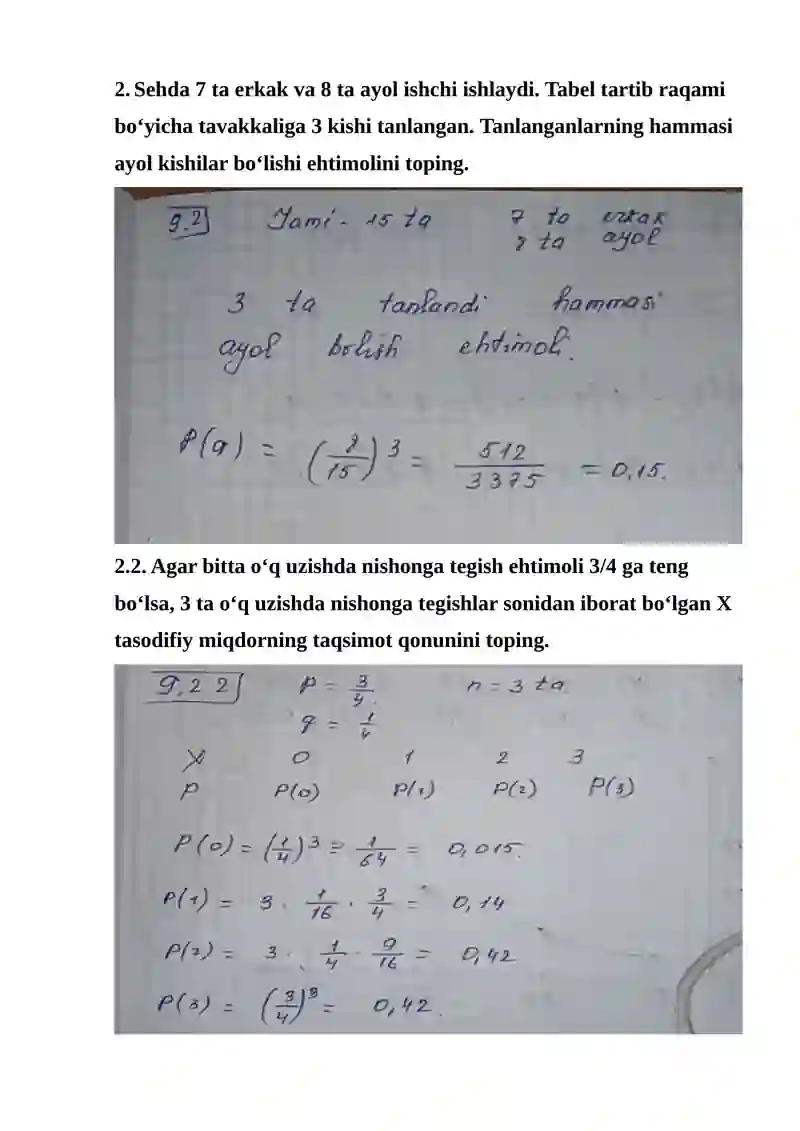 2. Sehda 7 ta erkak va 8 ta ayol ishchi ishlaydi. Tabel tartib raqami
bo‘yicha tavakkaliga 3 kishi tanlangan. Tanlanganlarning hammasi
ayol kishilar bo‘lishi ehtimolini toping.
9.2 Jami - 15 ta 7 ta erkak
8 ta ayol
3 ta tanlandi hammasi
ayol bolish ehtimoli.
P(a) = (8/15)^3 = 512/3375 = 0,15.
2.2. Agar bitta o‘q uzishda nishonga tegish ehtimoli 3/4 ga teng
bo‘lsa, 3 ta o‘q uzishda nishonga tegishlar sonidan iborat bo‘lgan X
tasodifiy miqdorning taqsimot qonunini toping.
9.22 p = 3/4. n = 3 ta.
q = 1/4
X 0 1 2 3
P P(0) P(1) P(2) P(3)
P(0) = (1/4)^3 = 1/64 = 0,015.
P(1) = 3 · 1/16 · 3/4 = 0,14
P(2) = 3 · 1/4 · 9/16 = 0,42
P(3) = (3/4)^3 = 0,42.